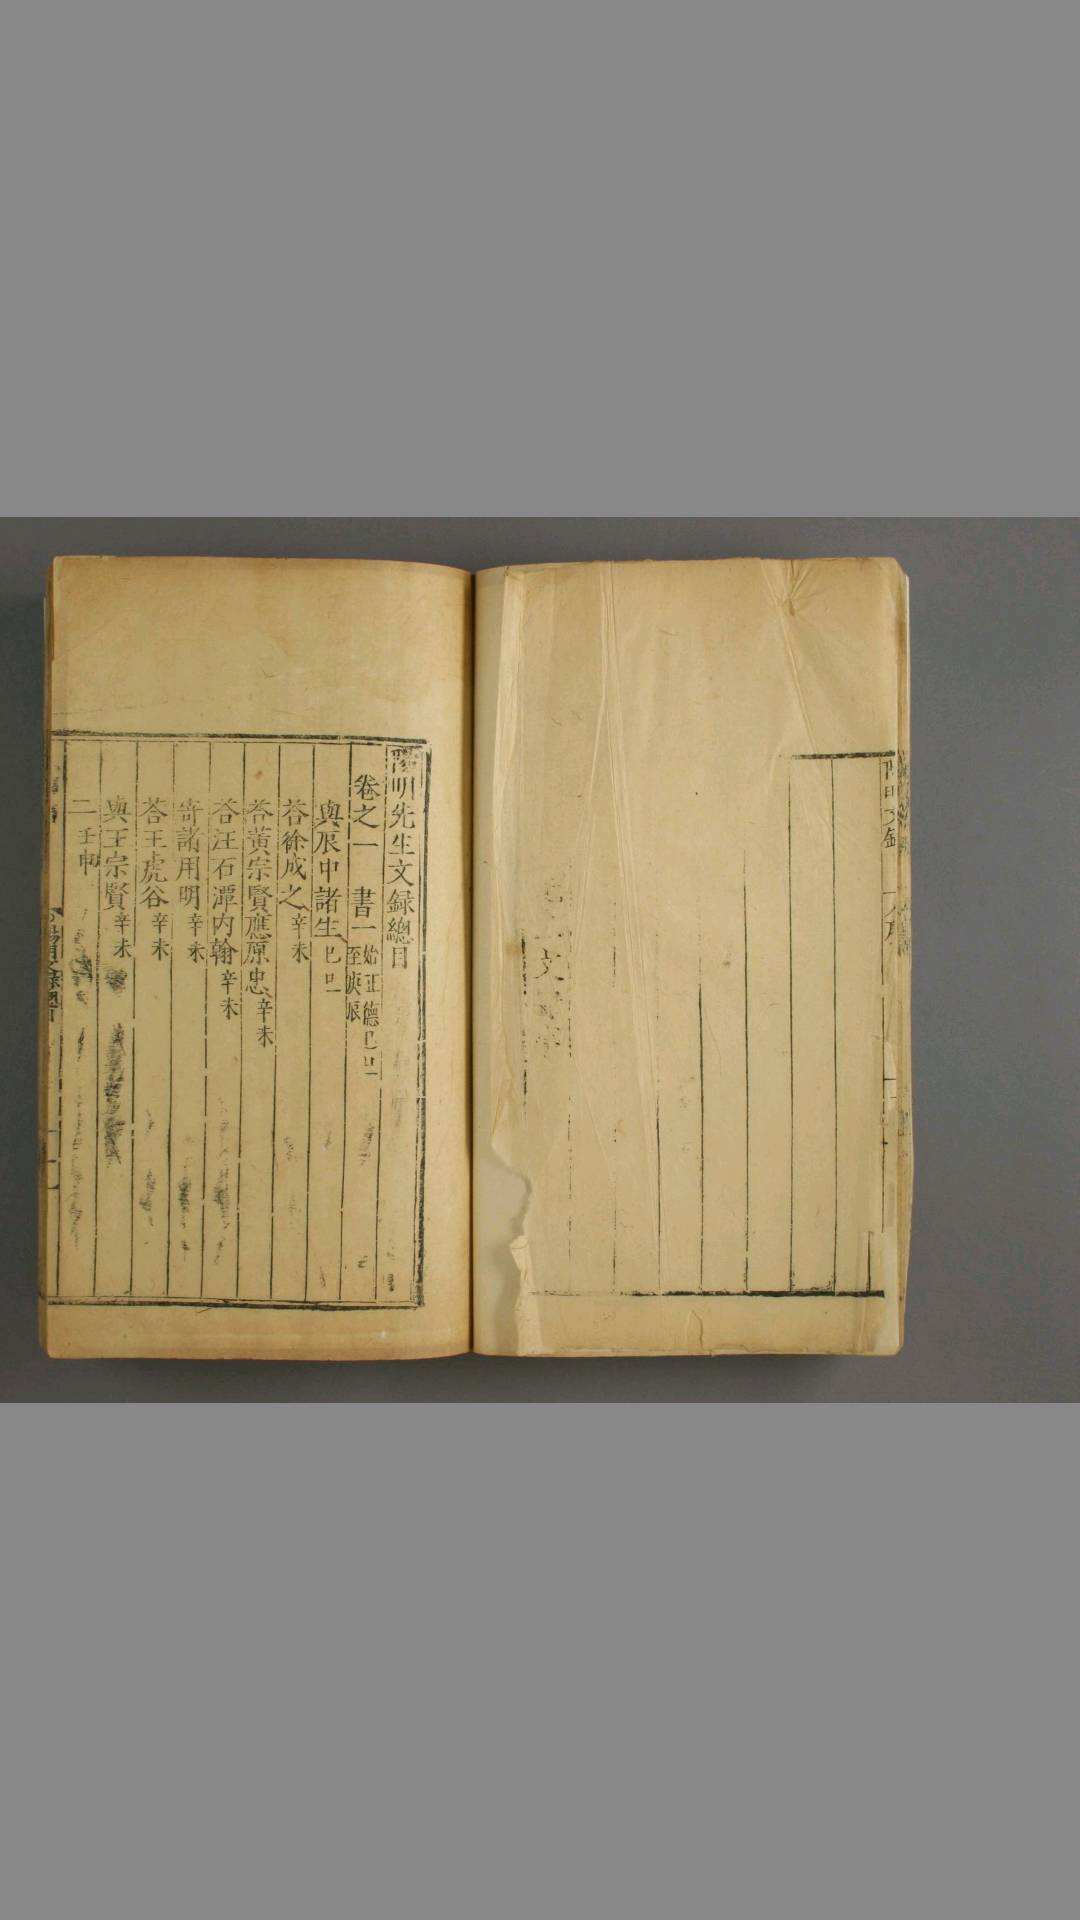 陽明先生文録總目
卷之一　書一　始正德己巳至庚辰
與辰中諸生　己巳
荅徐成之　辛未
荅黃宗賢應原忠　辛未
荅汪石潭內翰　辛未
寄諸用明　辛未
荅王虎谷　辛未
與王宗賢　辛未
二　壬申